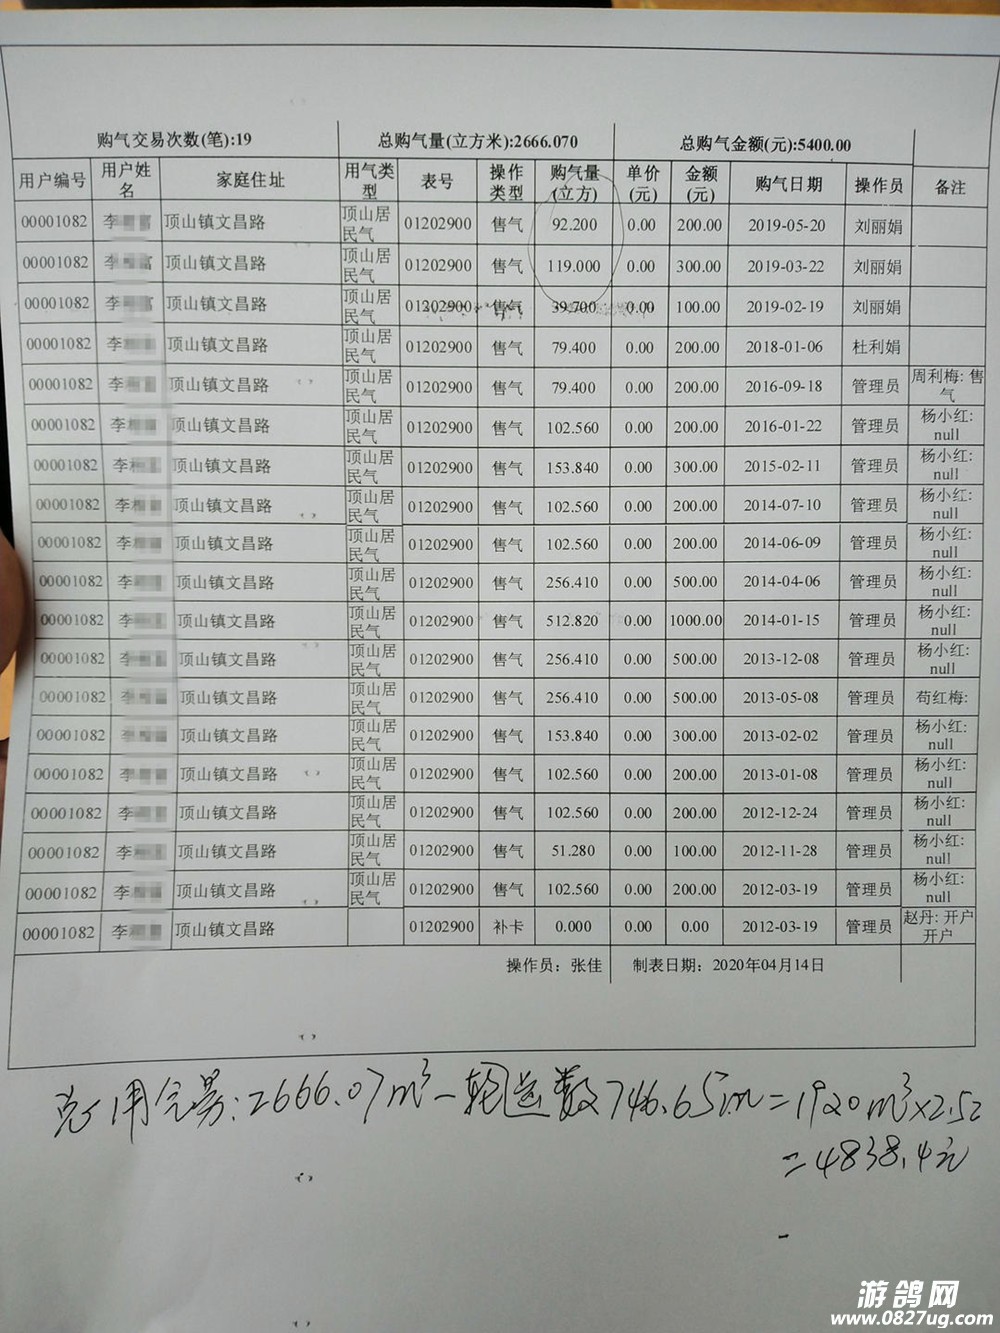 购气交易次数(笔):19 总购气量(立方米):2666.070 总购气金额(元):5400.00
用户编号 用户姓名 家庭住址 用气类型 表号 操作类型 购气量(立方) 单价(元) 金额(元) 购气日期 操作员 备注
00001082 李 富 顶山镇文昌路 顶山居民气 01202900 售气 92.200 0.00 200.00 2019-05-20 刘丽娟
00001082 李 富 顶山镇文昌路 顶山居民气 01202900 售气 119.000 0.00 300.00 2019-03-22 刘丽娟
00001082 李 富 顶山镇文昌路 顶山居民气 01202900 售气 39.700 0.00 100.00 2019-02-19 刘丽娟
00001082 李 顶山镇文昌路 顶山居民气 01202900 售气 79.400 0.00 200.00 2018-01-06 杜利娟
00001082 李 顶山镇文昌路 顶山居民气 01202900 售气 79.400 0.00 200.00 2016-09-18 管理员 周利梅: 售气
00001082 李 顶山镇文昌路 顶山居民气 01202900 售气 102.560 0.00 200.00 2016-01-22 管理员 杨小红: null
00001082 李 顶山镇文昌路 顶山居民气 01202900 售气 153.840 0.00 300.00 2015-02-11 管理员 杨小红: null
00001082 李 顶山镇文昌路 顶山居民气 01202900 售气 102.560 0.00 200.00 2014-07-10 管理员 杨小红: null
00001082 李 顶山镇文昌路 顶山居民气 01202900 售气 102.560 0.00 200.00 2014-06-09 管理员 杨小红: null
00001082 李 顶山镇文昌路 顶山居民气 01202900 售气 256.410 0.00 500.00 2014-04-06 管理员 杨小红: null
00001082 李 顶山镇文昌路 顶山居民气 01202900 售气 512.820 0.00 1000.00 2014-01-15 管理员 杨小红: null
00001082 李 顶山镇文昌路 顶山居民气 01202900 售气 256.410 0.00 500.00 2013-12-08 管理员 杨小红: null
00001082 李 顶山镇文昌路 顶山居民气 01202900 售气 256.410 0.00 500.00 2013-05-08 管理员 苟红梅:
00001082 李 顶山镇文昌路 顶山居民气 01202900 售气 153.840 0.00 300.00 2013-02-02 管理员 杨小红: null
00001082 李 顶山镇文昌路 顶山居民气 01202900 售气 102.560 0.00 200.00 2013-01-08 管理员 杨小红: null
00001082 李 顶山镇文昌路 顶山居民气 01202900 售气 102.560 0.00 200.00 2012-12-24 管理员 杨小红: null
00001082 李 顶山镇文昌路 顶山居民气 01202900 售气 51.280 0.00 100.00 2012-11-28 管理员 杨小红: null
00001082 李 顶山镇文昌路 顶山居民气 01202900 售气 102.560 0.00 200.00 2012-03-19 管理员 杨小红: null
00001082 李 顶山镇文昌路 01202900 补卡 0.000 0.00 0.00 2012-03-19 管理员 赵丹: 开户开户
操作员: 张佳 制表日期: 2020年04月14日
用气量:2666.07m³-轮 数746.65m=1920m³×2.52
=4838.4元
游鸽网
www.0827ug.com